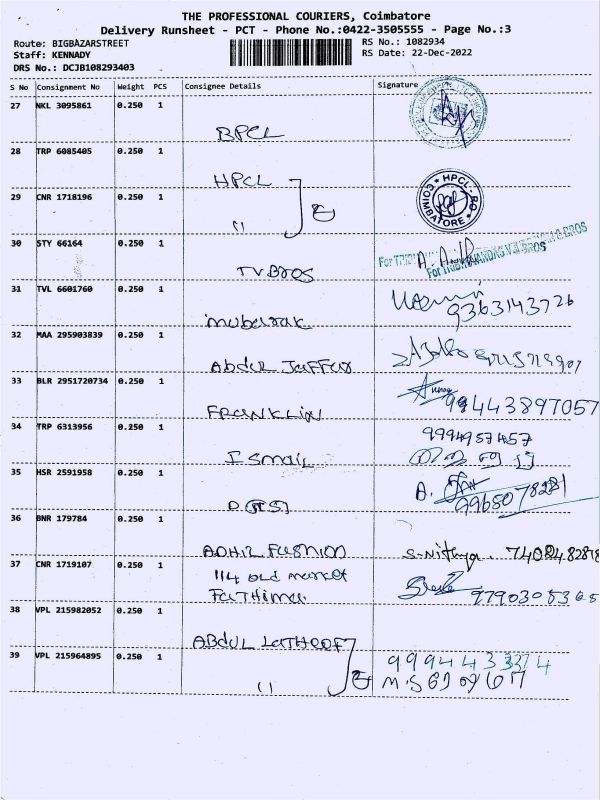 THE PROFESSIONAL COURIERS, Coimbatore
Delivery Runsheet - PCT - Phone No.:0422-3505555 - Page No.:3
Route: BIGBAZARSTREET
Staff: KENNADY
DRS No.: DCJB108293403
RS No.: 1082934
RS Date: 22-Dec-2022
S No Consignment No Weight PCS Consignee Details Signature
27 NKL 3095861 0.250 1
BPCL
28 TRP 6085405 0.250 1
HPCL
29 CNR 1718196 0.250 1
HPCL-RO
COIMBATORE
30 STY 66164 0.250 1
TVBROS
31 TVL 6601760 0.250 1
9363143726
mubarak
32 MAA 295903839 0.250 1
Abdul Jaffar
33 BLR 2951720734 0.250 1
99443897057
FRANKLIN
34 TRP 6313956 0.250 1
9994957457
Ismail
35 HSR 2591958 0.250 1
A.
36 BNR 179784 0.250 1
ADHIL Fashion
S-Nithya.
37 CNR 1719107 0.250 1
114 old market
Fathima
38 VPL 215982052 0.250 1
ABDUL LATHEEF
39 VPL 215964895 0.250 1